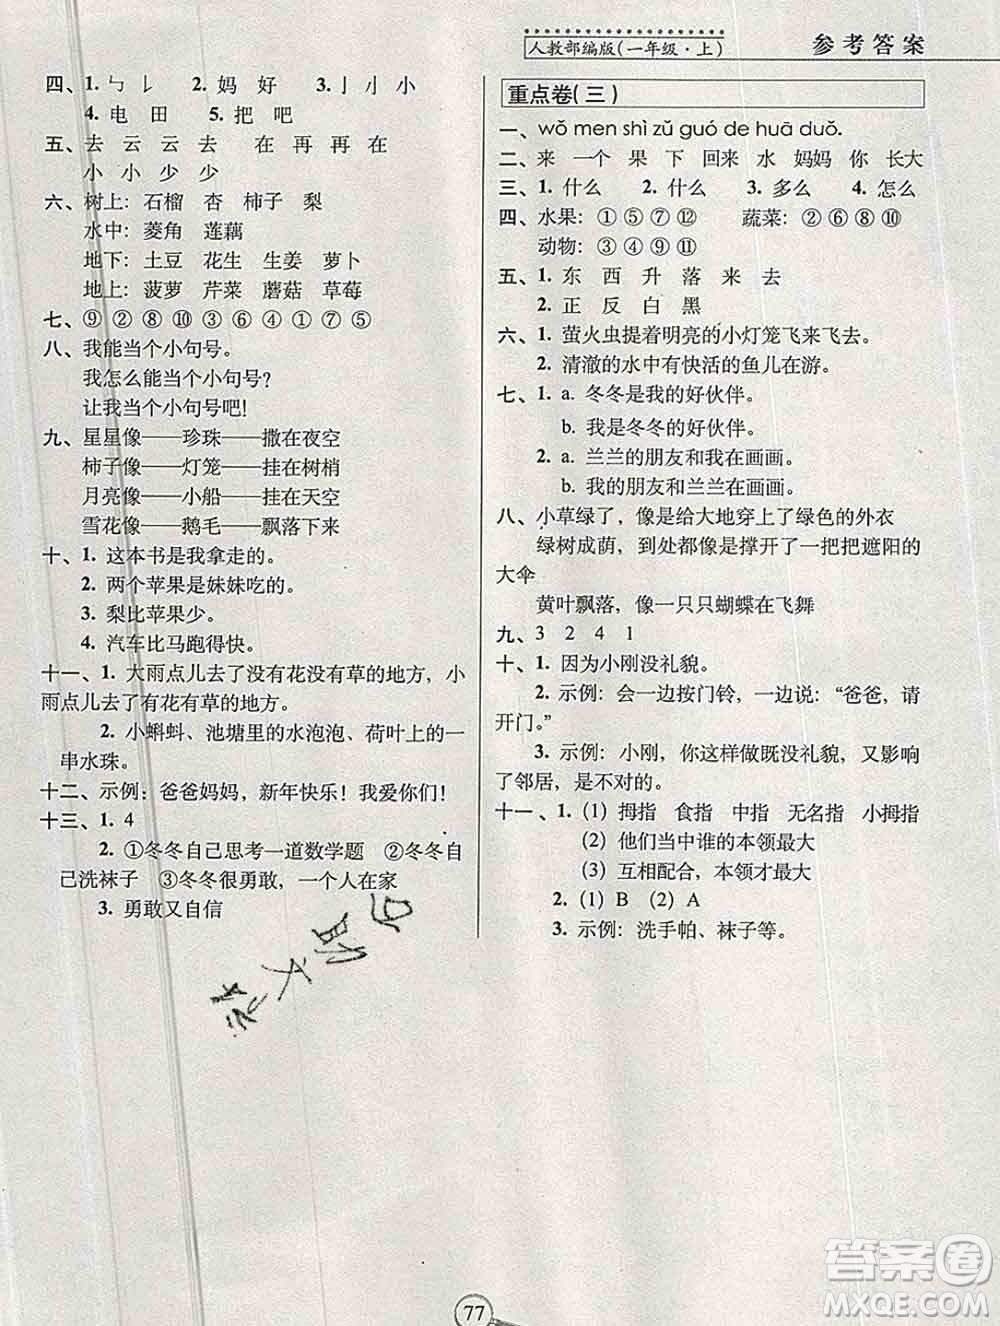 人教部编版(一年级·上)
参考答案
四、1. ㄣ 亅 2. 妈 好 3. 亅 小 小
4. 电 田 5. 把 吧
五、去 云 云 去 在 再 再 在
小 小 少 少
六、树上：石榴 杏 柿子 梨
水中：菱角 莲藕
地下：土豆 花生 生姜 萝卜
地上：菠萝 芹菜 蘑菇 草莓
七、⑨ ② ⑧ ⑩ ③ ④ ⑥ ① ⑦ ⑤
八、我能当个小句号。
我怎么能当个小句号？
让我当个小句号吧！
九、星星像——珍珠——撒在夜空
柿子像——灯笼——挂在树梢
月亮像——小船——挂在天空
雪花像——鹅毛——飘落下来
十、1. 这本书是我拿走的。
2. 两个苹果是妹妹吃的。
3. 梨比苹果少。
4. 汽车比马跑得快。
十一、1. 大雨点儿去了没有花没有草的地方，小
雨点儿去了有花有草的地方。
2. 小蝌蚪、池塘里的水泡泡、荷叶上的一
串水珠。
十二、示例：爸爸妈妈，新年快乐！我爱你们！
十三、1. 4
2. ①冬冬自己思考一道数学题 ②冬冬自
己洗袜子 ③冬冬很勇敢，一个人在家
3. 勇敢又自信
重点卷(三)
一、wǒ men shì zǔ guó de huā duǒ.
二、来 一个 果 下 回来 水 妈妈 你 长大
三、1. 什么 2. 什么 3. 多么 4. 怎么
四、水果：①⑤⑦⑫ 蔬菜：②⑥⑧⑩
动物：③④⑨⑪
五、1. 东 西 升 落 来 去
2. 正 反 白 黑
六、1. 萤火虫提着明亮的小灯笼飞来飞去。
2. 清澈的水中有快活的鱼儿在游。
七、1. a. 冬冬是我的好伙伴。
b. 我是冬冬的好伙伴。
2. a. 兰兰的朋友和我在画画。
b. 我的朋友和兰兰在画画。
八、小草绿了，像是给大地穿上了绿色的外衣
绿树成荫，到处都像是撑开了一把把遮阳的
大伞
黄叶飘落，像一只只蝴蝶在飞舞
九、3 2 4 1
十、1. 因为小刚没礼貌。
2. 示例：会一边按门铃，一边说：“爸爸，请
开门。”
3. 示例：小刚，你这样做既没礼貌，又影响
了邻居，是不对的。
十一、1. (1) 拇指 食指 中指 无名指 小拇指
(2) 他们当中谁的本领最大
(3) 互相配合，本领最大
2. (1) B (2) A
3. 示例：洗手帕、袜子等。
77
答案圈
MXQE.COM